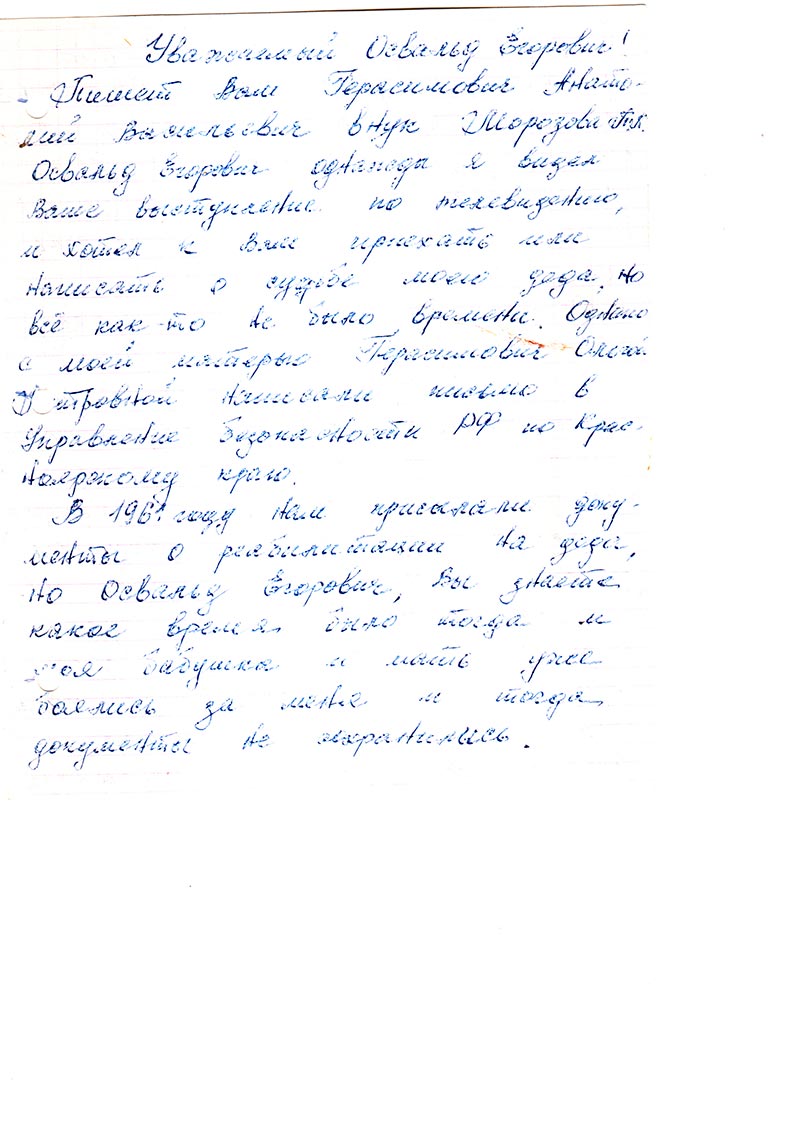 Уважаемый Освальд Егорович!
Пишет Вам Герасимович Анато-
лий Васильевич внук Морозова П.К.
Освальд Егорович однажды я видел
Ваше выступление по телевидению,
и хотел к Вам приехать или
написать о судьбе моего деда, но
всё как-то не было времени. Однако
с моей матерью Герасимович Ольгой
Петровной написали письмо в
Управление безопасности РФ по Крас-
ноярскому краю.
В году нам присылали доку-
менты о реабилитации на деда,
но Освальд Егорович, Вы знаете
какое время было тогда и
моя бабушка и мать уже
боялись за меня и тогда
документы не сохранились.